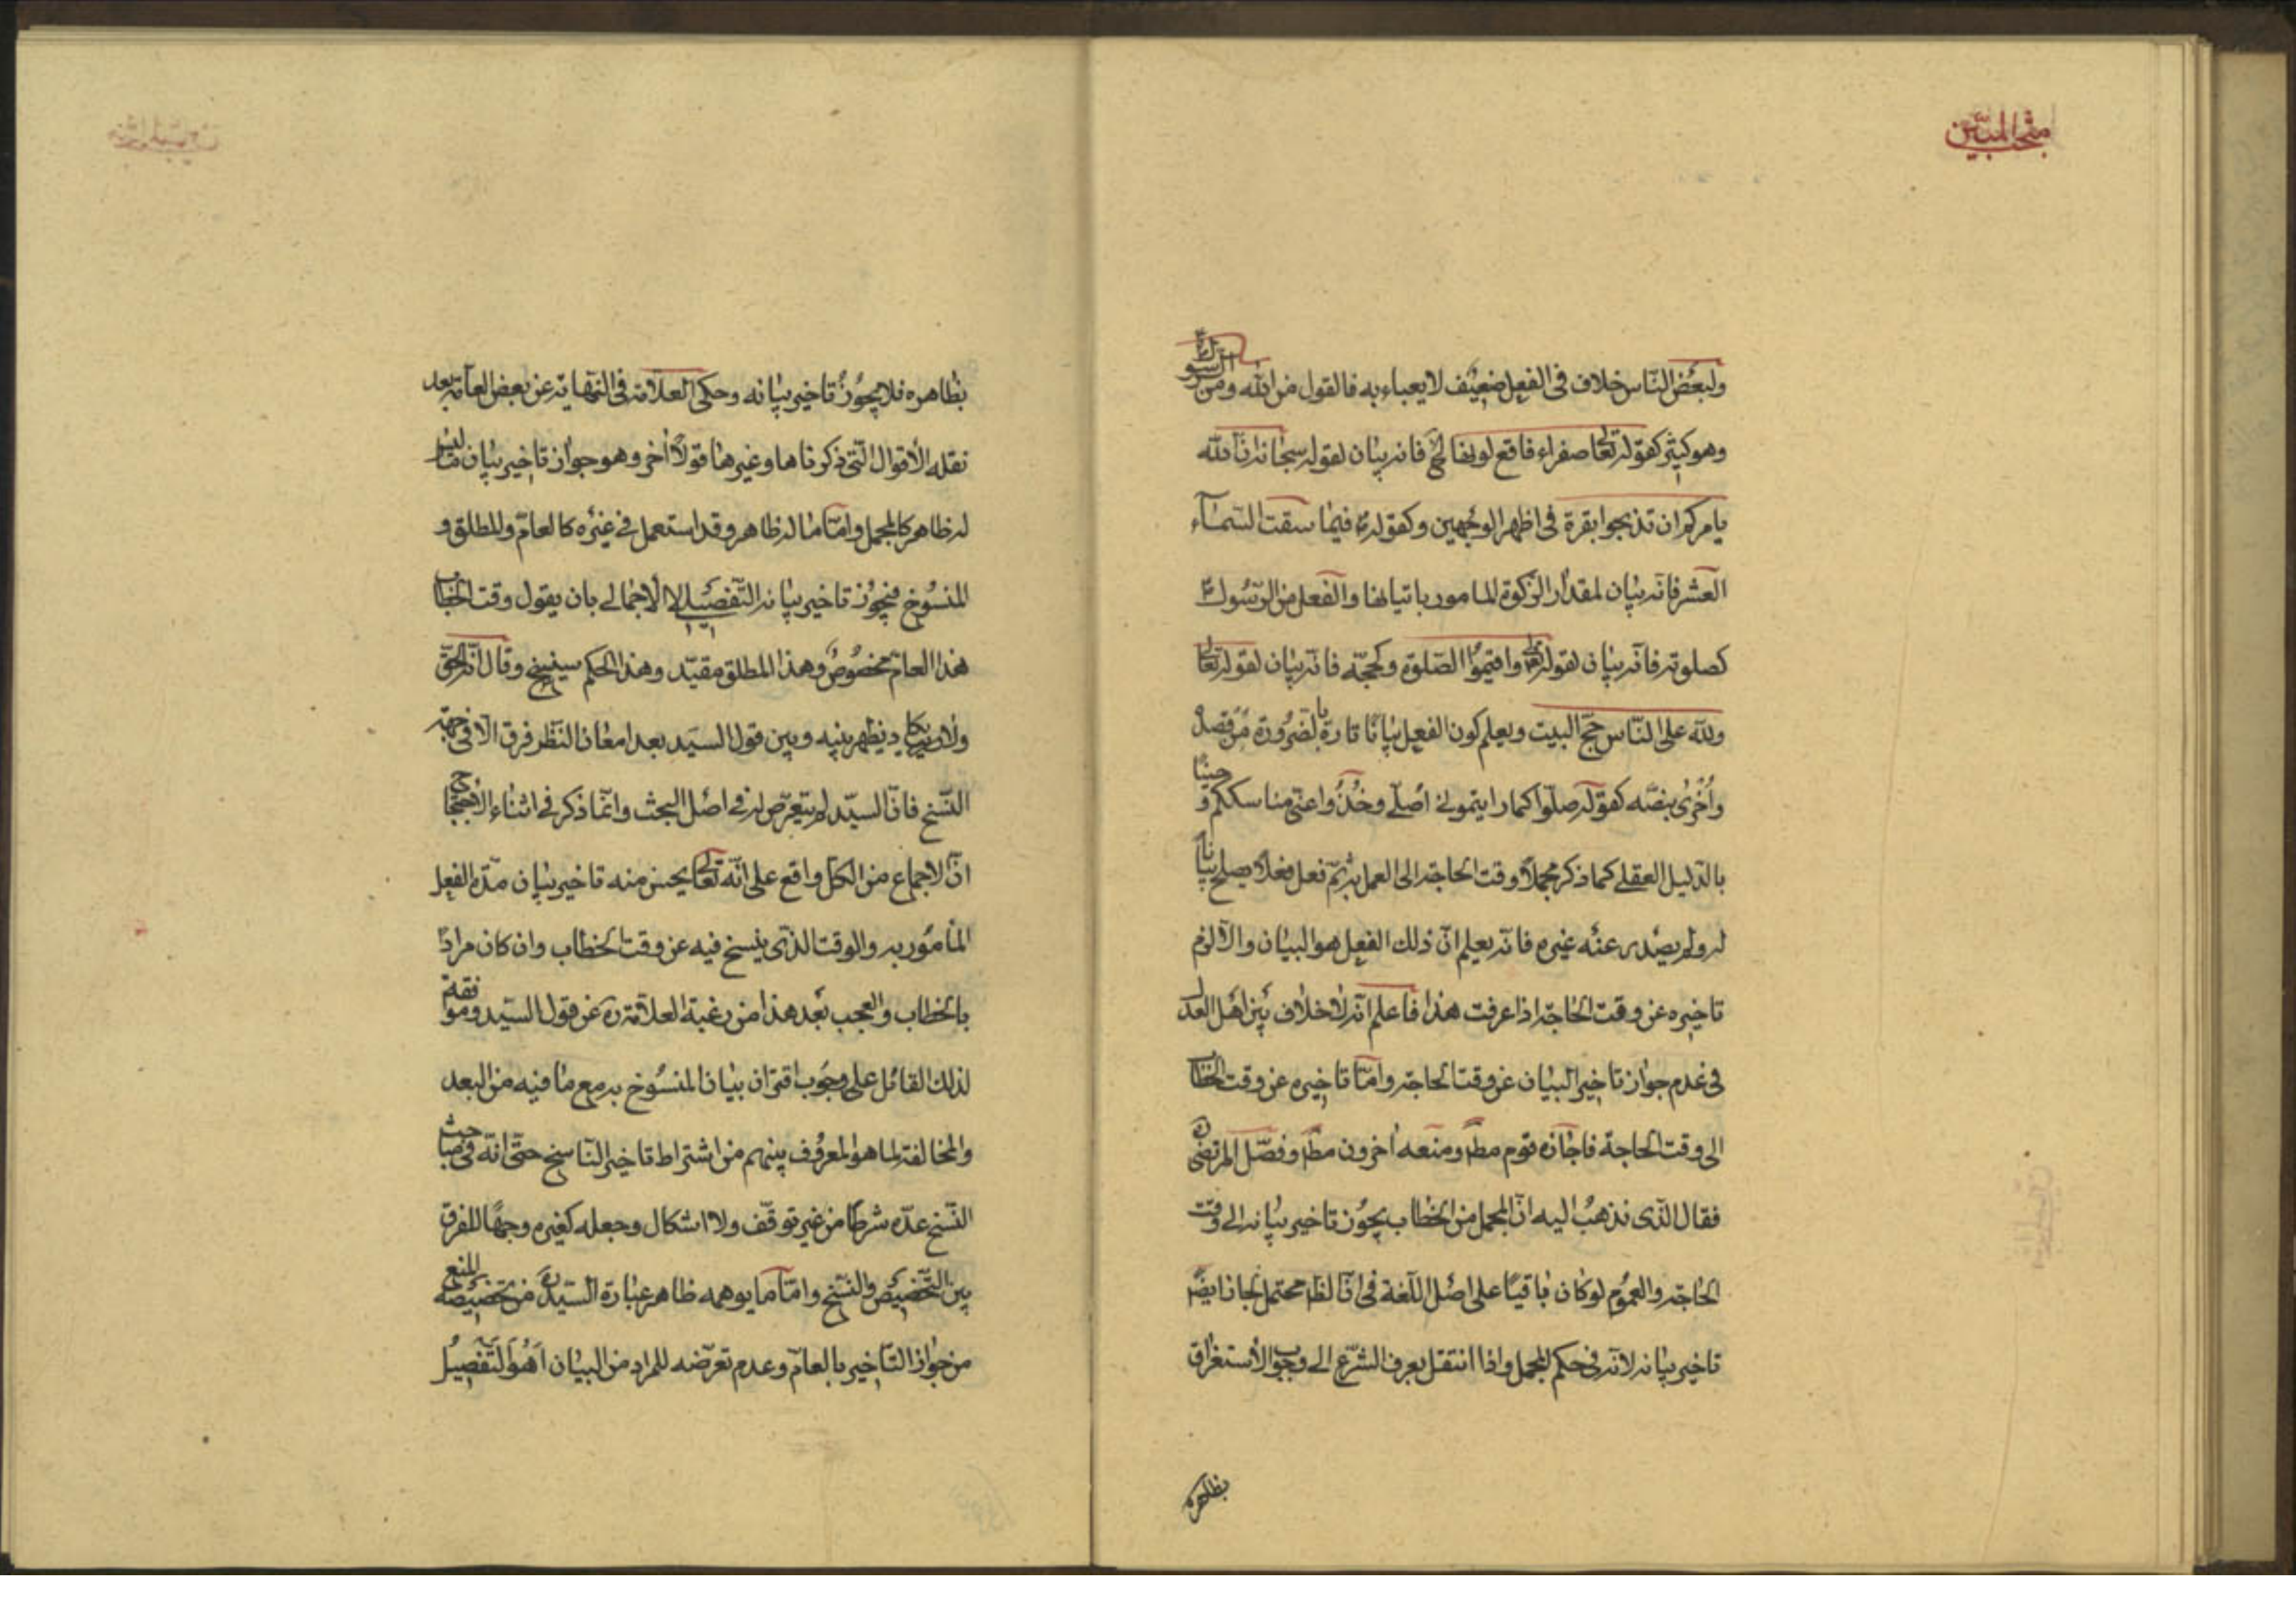 مبحث المبيّن
ولبعض الناس خلاف فی الفعل ضعيف لا يعباء به فالقول من الله ومن الرسول ص
وهو كثير كقوله تعالى صفراء فاقع لونها الخ فانه بيان لقوله سبحانه انّ الله
يامركم ان تذبحوا بقرة فی اظهر الوجهين وكقوله ص فيما سقت السّماء
العشر فانّه بيان لمقدار الزكوة المامور باتيانها والفعل من الرّسول ص
كصلوته فانّه بيان لقوله تعالى واقيموا الصّلوة وكحجّه فانّه بيان لقوله تعالى
ولله على النّاس حجّ البيت ويعلم كون الفعل بيانًا تارة بالضرورة من قصده
وأخرى بنصّه كقوله صلّوا كما رايتمونی اصلّی وخذوا عنّی مناسككم وحينًا
بالدّليل العقلی كما ذكر مجملًا وقت الحاجة الى العمل به ثمّ فعل فعلًا يصلح بيانا
له ولم يصدر عنه غيره فانّه يعلم انّ ذلك الفعل هو البيان والّا لزم
تاخيره عن وقت الحاجة اذا عرفت هذا فاعلم انّه لا خلاف بين اهل العدل
فی عدم جواز تاخير البيان عن وقت الحاجة وامّا تاخيره عن وقت الخطاب
الى وقت الحاجة فاجازه قوم مطم ومنعه اخرون مطم وفصّل المرتضى ره
فقال الّذی نذهب اليه انّ المجمل من الخطاب يجوز تاخير بيانه الى وقت
الحاجة والعموم لو كان باقيًا على اصل اللّغة فی انّ لفظه محتمل لجاز ايضًا
تاخير بيانه لانّه فی حكم المجمل واذا انتقل بعرف الشّرع الى وجوب الاستغراق
بظاهره
بظاهره فلا يجوز تاخير بيانه وحكى العلّامة فی النّهاية عن بعض العامّة بعد
نقله الأقوال الّتی ذكرناها وغيرها قولًا أخر وهو جواز تاخير بيان ما ليس
له ظاهر كالمجمل وامّا ما له ظاهر وقد استعمل فی غيره كالعامّ والمطلق و
المنسوخ فيجوز تاخير بيانه التّفصيلی لا الاجمالی بان يقول وقت الخطاب
هذا العامّ مخصوص وهذا المطلق مقيّد وهذا الحكم سينسخ وقال انّه الحقّ
ولا يكاد يظهر بينه وبين قول السيّد بعد امعان النّظر فرق الّا فی جهة
النّسخ فانّ السيّد لم يتعرّض له فی اصل البحث وانّما ذكر فی اثناء الاحتجاج
انّ الاجماع من الكلّ واقع على انّه تعالى يحسن منه تاخير بيان مدّة الفعل
المأمور به والوقت الّذی ينسخ فيه عن وقت الخطاب وان كان مرادًا
بالخطاب والعجب بعد هذا من رغبة العلّامة ره عن قول السّيد وموافقته
لذلك القائل على وجوب اقتران بيان المنسوخ به مع ما فيه من البعد
والمخالفة لما هو المعروف بينهم من اشتراط تاخير النّاسخ حتّى انّه فی مباحث
النّسخ عدّه شرطًا من غير توقّف ولا اشكال وجعله كغيره وجهًا للفرق
بين التّخصيص والنّسخ وامّا ما يوهمه ظاهر عبارة السّيد ره من تخصيصه المنع
من جواز التّاخير بالعامّ وعدم تعرّضه للمراد من البيان اهو التّفصيل